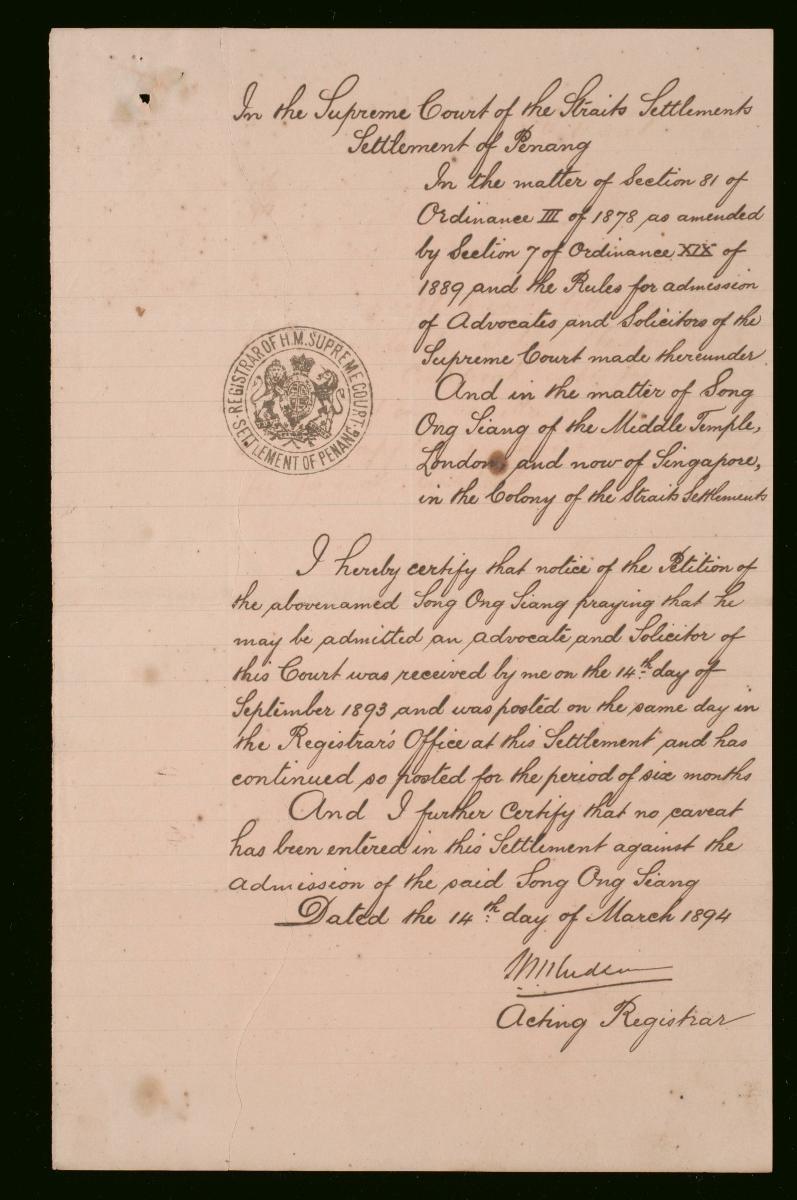 In the Supreme Court of the Straits Settlements
Settlement of Penang
In the matter of Section 81 of
Ordinance III of 1878 as amended
by Section 7 of Ordinance XIX of
1889 and the Rules for admission
of Advocates and Solicitors of the
Supreme Court made thereunder
And in the matter of Song
Ong Siang of the Middle Temple,
London, and now of Singapore,
in the Colony of the Straits Settlements
REGISTRAR OF H.M. SUPREME COURT
SETTLEMENT OF PENANG
I hereby certify that notice of the Petition of
the abovenamed Song Ong Siang praying that he
may be admitted an advocate and Solicitor of
this Court was received by me on the 14th day of
September 1893 and was posted on the same day in
the Registrar's Office at this Settlement and has
continued so posted for the period of six months
And I further certify that no caveat
has been entered in this Settlement against the
admission of the said Song Ong Siang
Dated the 14th day of March 1894
Acting Registrar